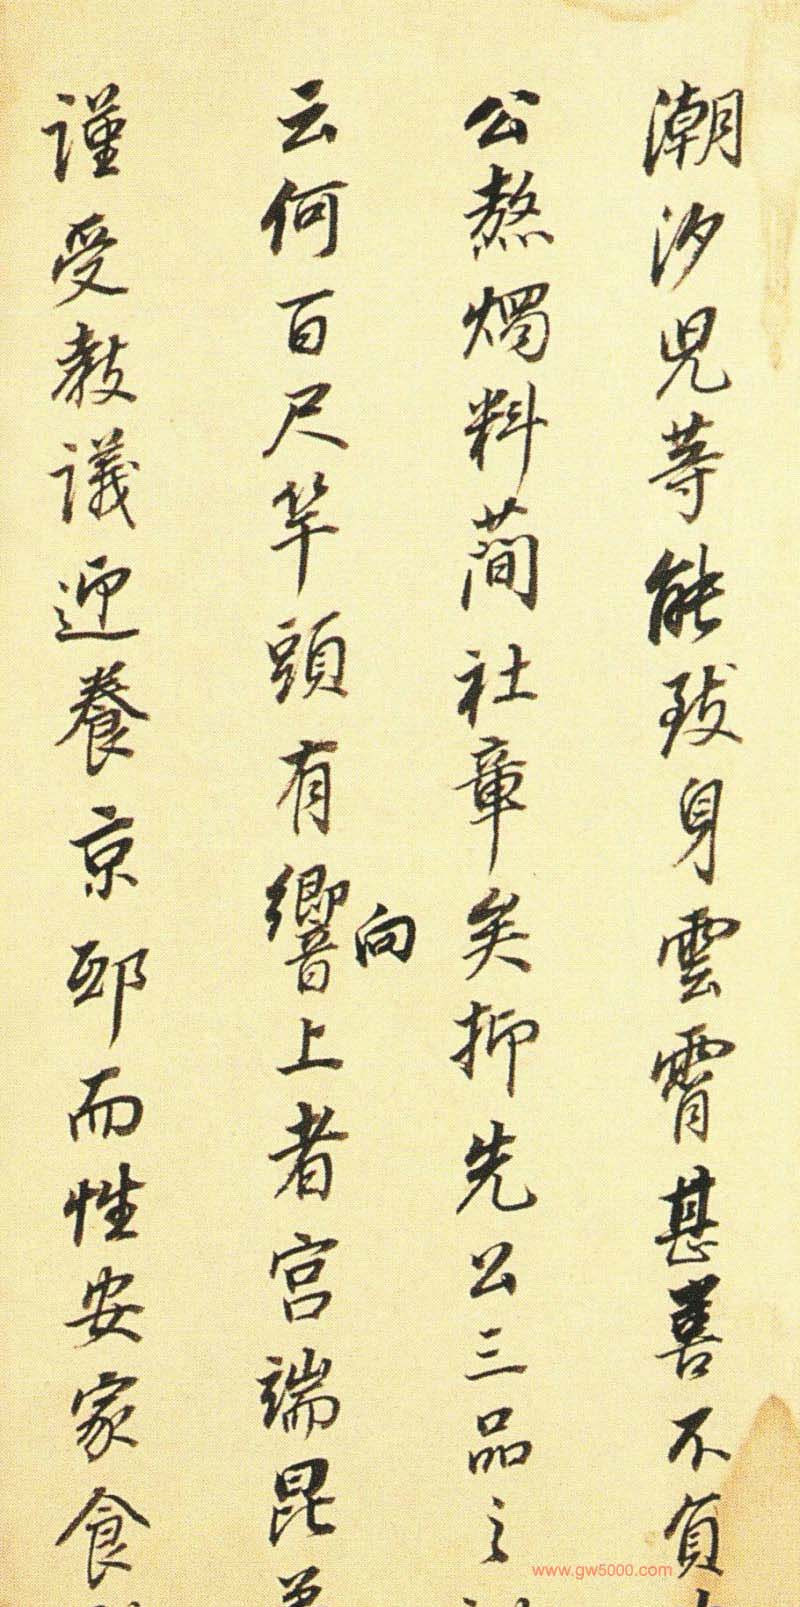 潮汐兒等能致身雲霄甚善不負
公熬燭料蕳社章矣抑先公三品之
云何百尺竿頭有響向上者宫端昆
謹受教議迎養京邸而性安家食
www.gw5000.com